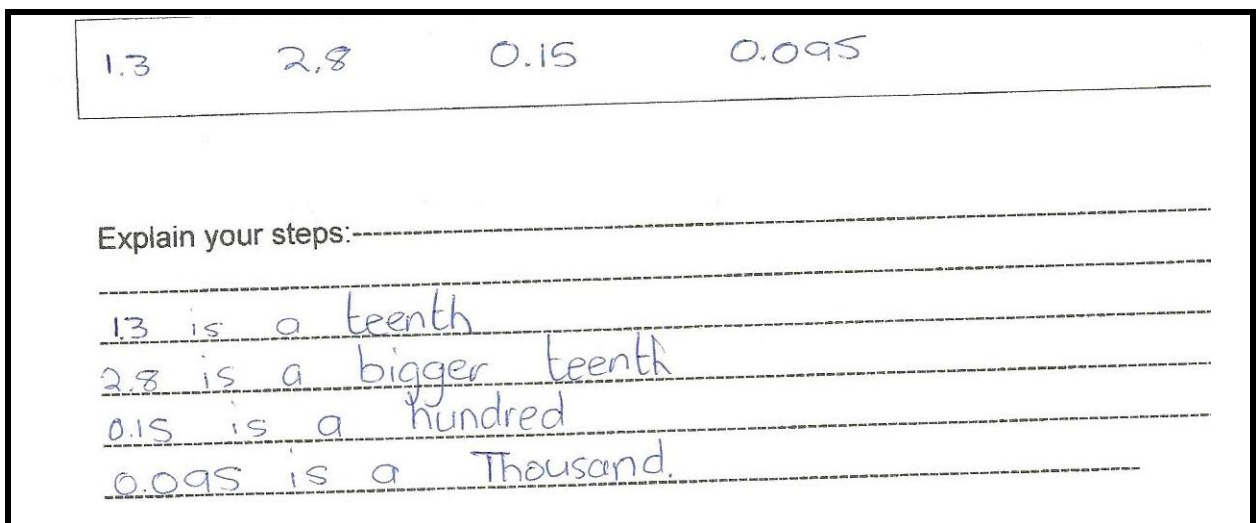 1.3 2.8 0.15 0.095
Explain your steps:
1.3 is a teenth
2.8 is a bigger teenth
0.15 is a hundred
0.095 is a Thousand.